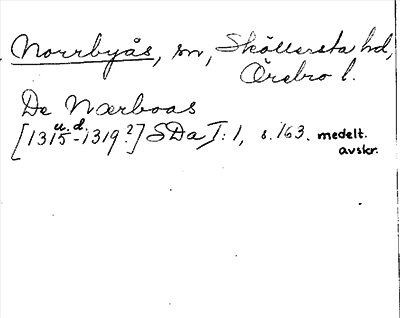 Norrbyås, sn, Sköllersta hd,
Örebro l.
De Nærboas
[1315 u.d. -1319?] SDa I: 1, s. 163. medelt.
avskr.